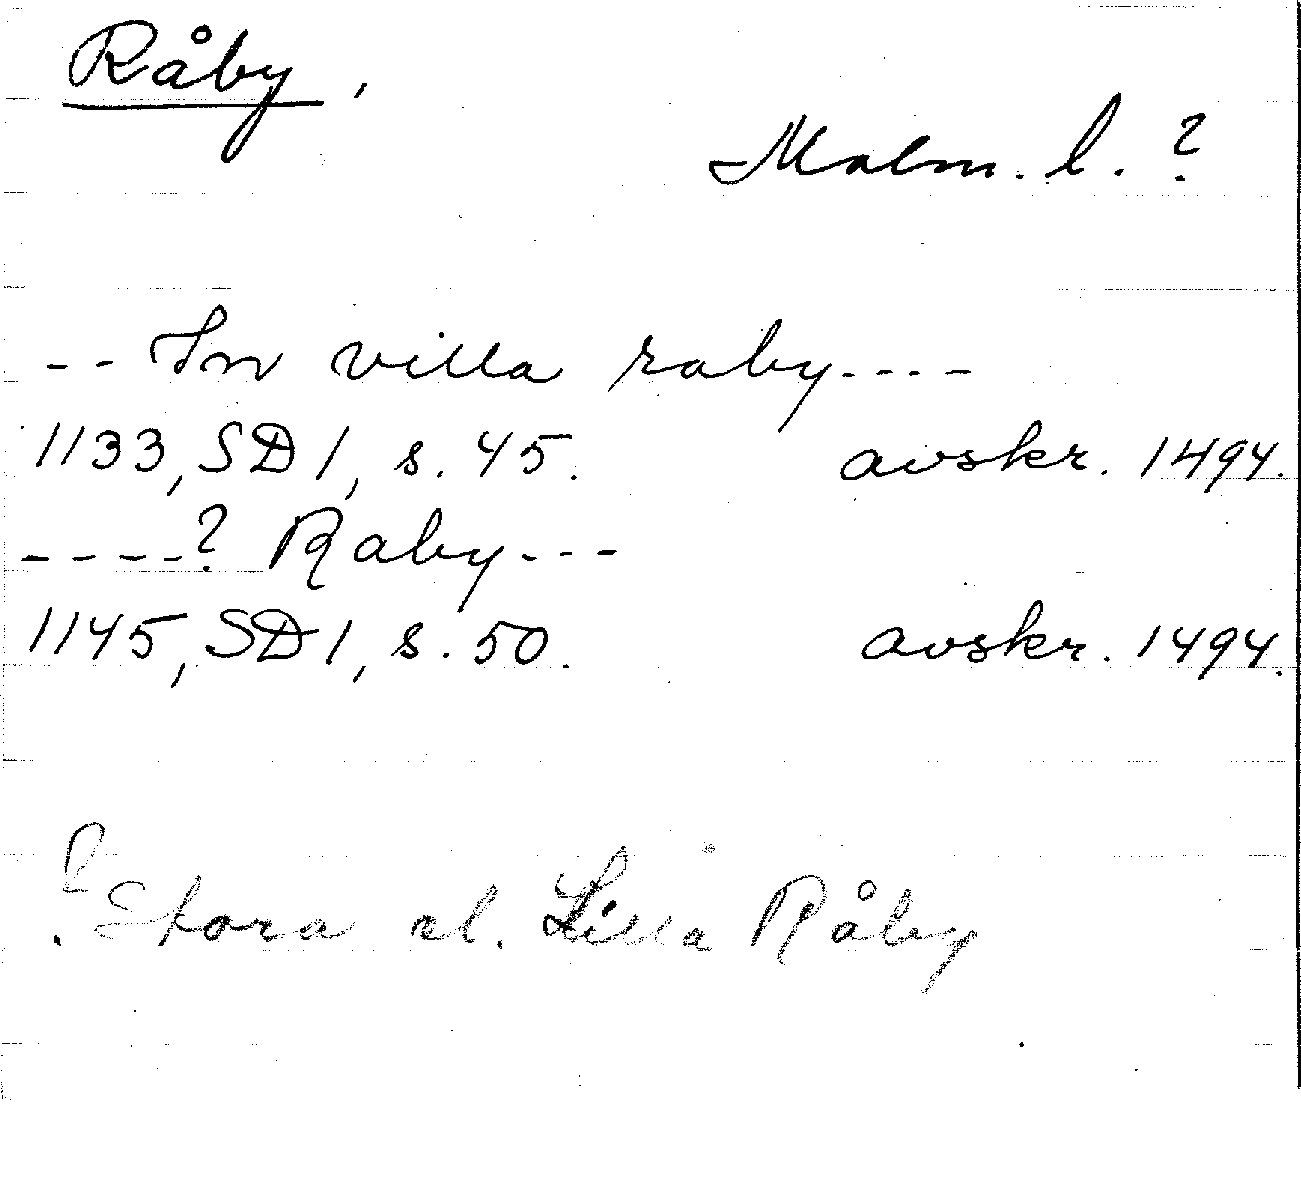 Råby,
Malm. l. ?
-- In villa raby----
1133, SD 1, s. 45. avskr. 1494.
----? Raby---
1145, SD 1, s. 50. avskr. 1494.
? Stora el. Lilla Råby